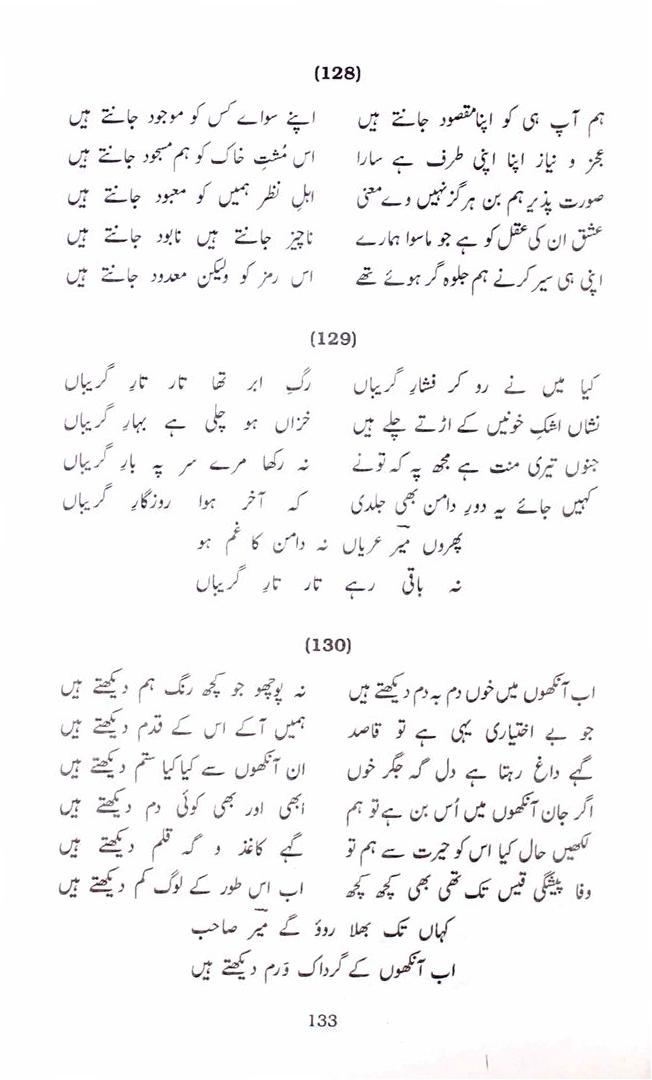 (128)
ہم آپ ہی کو اپنا مقصود جانتے ہیں اپنے سواے کس کو موجود جانتے ہیں
عجز و نیاز اپنا اپنی طرف ہے سارا اس مُشتِ خاک کو ہم مسجود جانتے ہیں
صورت پذیر ہم بن ہرگز نہیں وے معنی اہلِ نظر ہمیں کو معبود جانتے ہیں
عشق ان کی عقل کو ہے جو ماسوا ہمارے ناچیز جانتے ہیں نابود جانتے ہیں
اپنی ہی سیر کرنے ہم جلوہ گر ہوئے تھے اس رمز کو ولیکن معدود جانتے ہیں
(129)
کیا میں نے رو کر فشارِ گریباں رگِ ابر تھا تار تارِ گریباں
نشاں اشکِ خونیں کے اڑتے چلے ہیں خزاں ہو چلی ہے بہارِ گریباں
جنوں تیری منت ہے مجھ پہ کہ تونے نہ رکھا مرے سر پہ بارِ گریباں
کہیں جائے یہ دورِ دامن بھی جلدی کہ آخر ہوا روزگارِ گریباں
پھروں میرؔ عریاں نہ دامن کا غم ہو
نہ باقی رہے تار تارِ گریباں
(130)
اب آنکھوں میں خوں دم بہ دم دیکھتے ہیں نہ پوچھو جو کچھ رنگ ہم دیکھتے ہیں
جو بے اختیاری یہی ہے تو قاصد ہمیں آکے اس کے قدم دیکھتے ہیں
گہے داغ رہتا ہے دل گہ جگر خوں ان آنکھوں سے کیا کیا ستم دیکھتے ہیں
اگر جان آنکھوں میں اُس بن ہے تو ہم ابھی اور بھی کوئی دم دیکھتے ہیں
لکھیں حال کیا اس کو حیرت سے ہم تو گہے کاغذ و گہ قلم دیکھتے ہیں
وفا پیشگی قیس تک تھی بھی کچھ کچھ اب اس طور کے لوگ کم دیکھتے ہیں
کہاں تک بھلا روؤ گے میرؔ صاحب
اب آنکھوں کے گرد اک وَرم دیکھتے ہیں
133